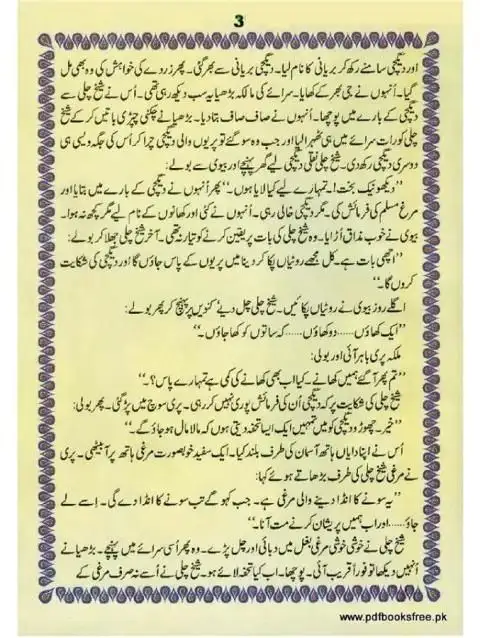 3
اور دیگچی سامنے رکھ کر بریانی کا نام لیا۔ دیگچی بریانی سے بھر گئی۔ پھر زردے کی خواہش کی وہ بھی مل
گیا۔ انہوں نے جی بھر کے کھایا۔ سرائے کی مالکہ بڑھیا یہ سب دیکھ رہی تھی۔ اُس نے شیخ چلی سے
دیگچی کے بارے میں پوچھا۔ انہوں نے صاف صاف بتا دیا۔ بڑھیا نے چکنی چپڑی باتیں کر کے شیخ
چلی کو رات سرائے میں ہی ٹھہرا لیا اور جب وہ سو گئے تو پریوں والی دیگچی چرا کر اُس کی جگہ ویسی ہی
دوسری دیگچی رکھ دی۔ شیخ چلی نقلی دیگچی لیے گھر پہنچے اور بیوی سے بولے:
’’دیکھو نیک بخت! تمہارے لیے کیا لایا ہوں۔‘‘ پھر اُنہوں نے دیگچی کے بارے میں بتایا اور
مرغ مسلم کی فرمائش کی۔ مگر دیگچی خالی رہی۔ اُنہوں نے کئی اور کھانوں کے نام لیے مگر کچھ نہ ہوا۔
بیوی نے خوب مذاق اُڑایا۔ وہ شیخ چلی کی بات پر یقین کرنے کو تیار نہ تھی۔ آخر شیخ چلی جھلا کر بولے:
’’اچھی بات ہے۔ کل مجھے روٹیاں پکا کر دینا میں پریوں کے پاس جاؤں گا اور دیگچی کی شکایت
کروں گا۔‘‘
اگلے روز بیوی نے روٹیاں پکائیں۔ شیخ چلی چل دیے‘ کنویں پر پہنچ کر پھر بولے:
’’ایک کھاؤں.....دو کھاؤں.....کہ ساتوں کو کھا جاؤں۔‘‘
ملکہ پری باہر آئی اور بولی:
’’تم پھر آگئے ہمیں کھانے۔ کیا اب بھی کھانے کی کمی ہے تمہارے پاس؟۔‘‘
شیخ چلی کی شکایت پر کہ دیگچی اُن کی فرمائش پوری نہیں کر رہی۔ پری سوچ میں پڑ گئی۔ پھر بولی:
’’خیر۔ چھوڑو دیگچی کو میں تمہیں ایک ایسا تحفہ دیتی ہوں کہ مالا مال ہو جاؤ گے۔‘‘
اُس نے اپنا دایاں ہاتھ آسمان کی طرف بلند کیا۔ ایک سفید خوبصورت مرغی ہاتھ پر آ بیٹھی۔ پری
نے مرغی شیخ چلی کی طرف بڑھاتے ہوئے کہا:
’’یہ سونے کا انڈا دینے والی مرغی ہے۔ جب کہو گے تب سونے کا انڈا دے گی۔ اِسے لے
جاؤ.....اور اب ہمیں پریشان کرنے مت آنا۔‘‘
شیخ چلی نے خوشی خوشی مرغی بغل میں دبائی اور چل پڑے۔ وہ پھر اُسی سرائے میں پہنچے۔ بڑھیا نے
اُنہیں دیکھا تو فوراً قریب آئی۔ پوچھا۔ اب کیا تحفہ لائے ہو۔ شیخ چلی نے اُسے نہ صرف مرغی کے
www.pdfbooksfree.pk